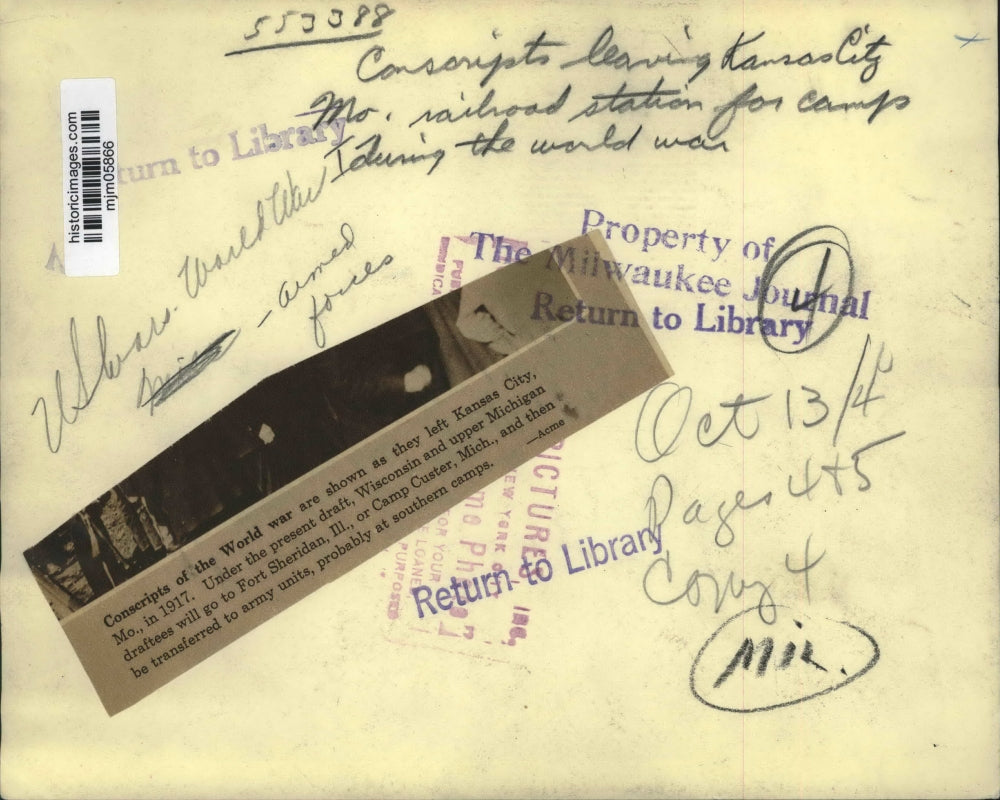 553388
Conscripts leaving Kansas City
Mo. railroad station for camps
I during the world war
Return to Library
historicimages.com
mjm05866
US Wars. World War I
- armed
forces
Property of
The Milwaukee Journal
Return to Library
1
Conscripts of the World war are shown as they left Kansas City,
Mo., in 1917. Under the present draft, Wisconsin and upper Michigan
draftees will go to Fort Sheridan, Ill., or Camp Custer, Mich., and then
be transferred to army units, probably at southern camps. —Acme
PICTURES INC.
NEW YORK
FOR YOUR
LOANED
PURPOSES
Return to Library
Oct 13/40
Pages 4+5
Copy 4
Mil.